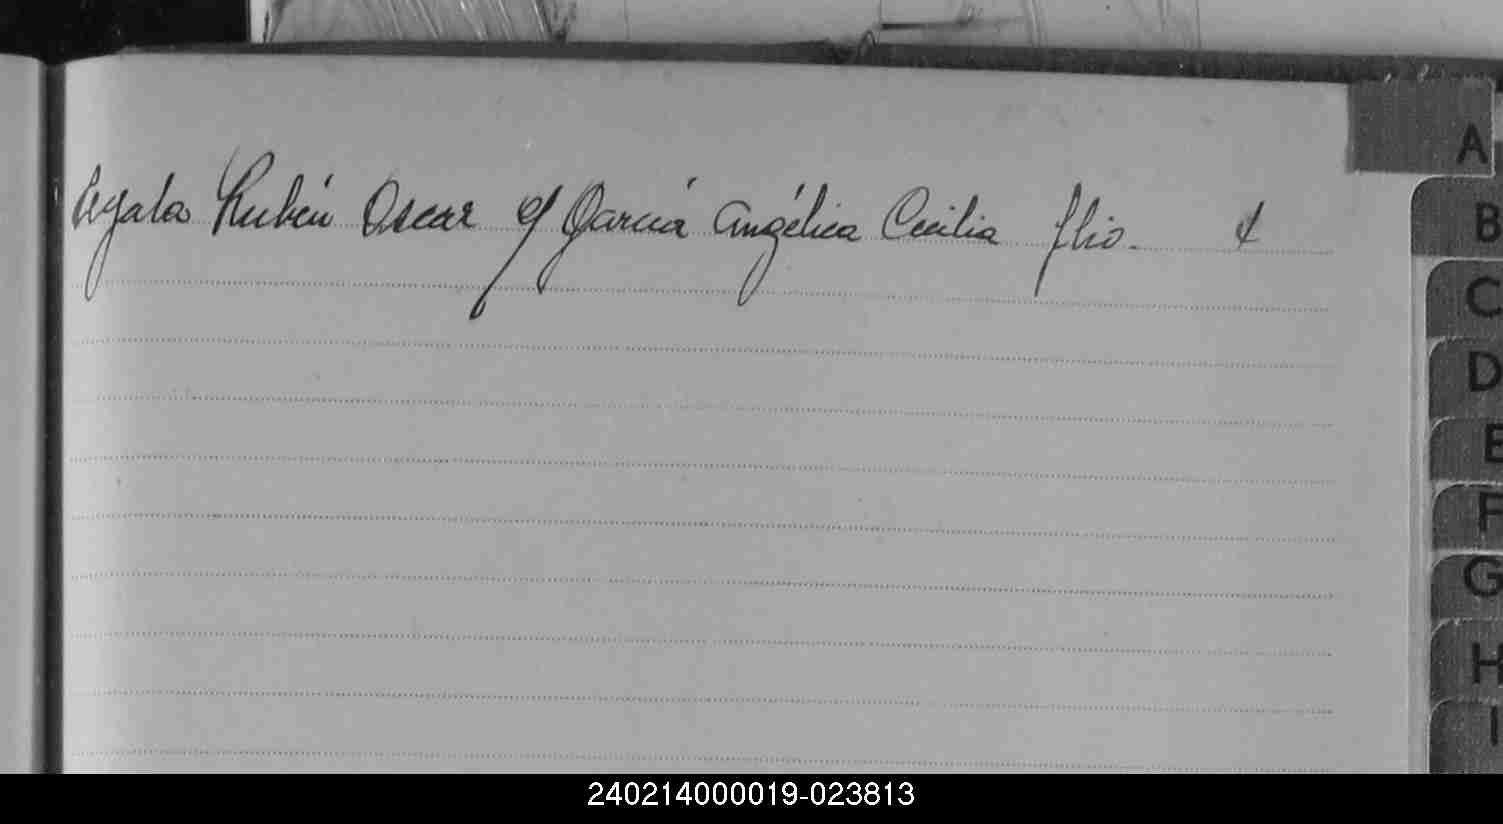 Ayala Rubén Oscar c/ García Angélica Cecilia flio. 4
A
B
C
D
E
F
G
H
I
240214000019-023813